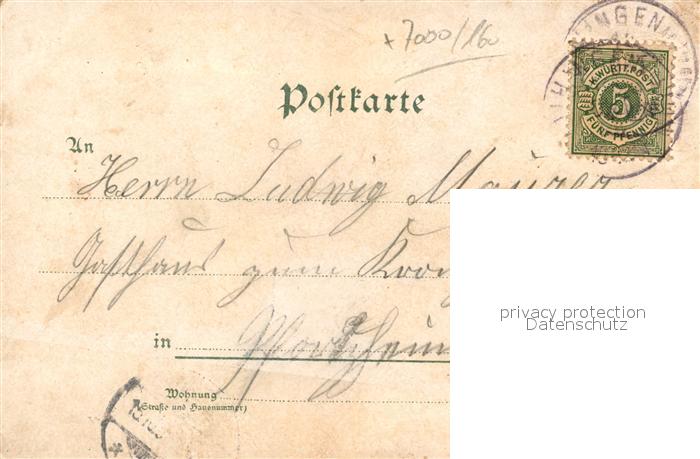 + 7000/160
K. WÜRTT. POST
5
FÜNF PFENNIG
Postkarte
An
Herrn Ludwig Maurer
Gasthaus zum
in Pforzheim
Wohnung
(Straße und Hausnummer)
privacy protection
Datenschutz